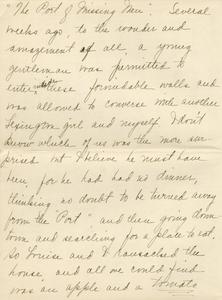 "The Port of Missing Men". Several
weeks ago, to the wonder and
amazement of all, a young
gentleman was permitted to
enter these formidable walls and
was allowed to converse with another
Lexington girl and myself. I don't
know which of us was the more sur-
prised but I believe he must have
been for he had had no dinner,
thinking no doubt to be turned away
from the "Port" and then going down
town and searching for a place to eat.
So Louise and I ransacked the
house and all we could find
was an apple and a tomato